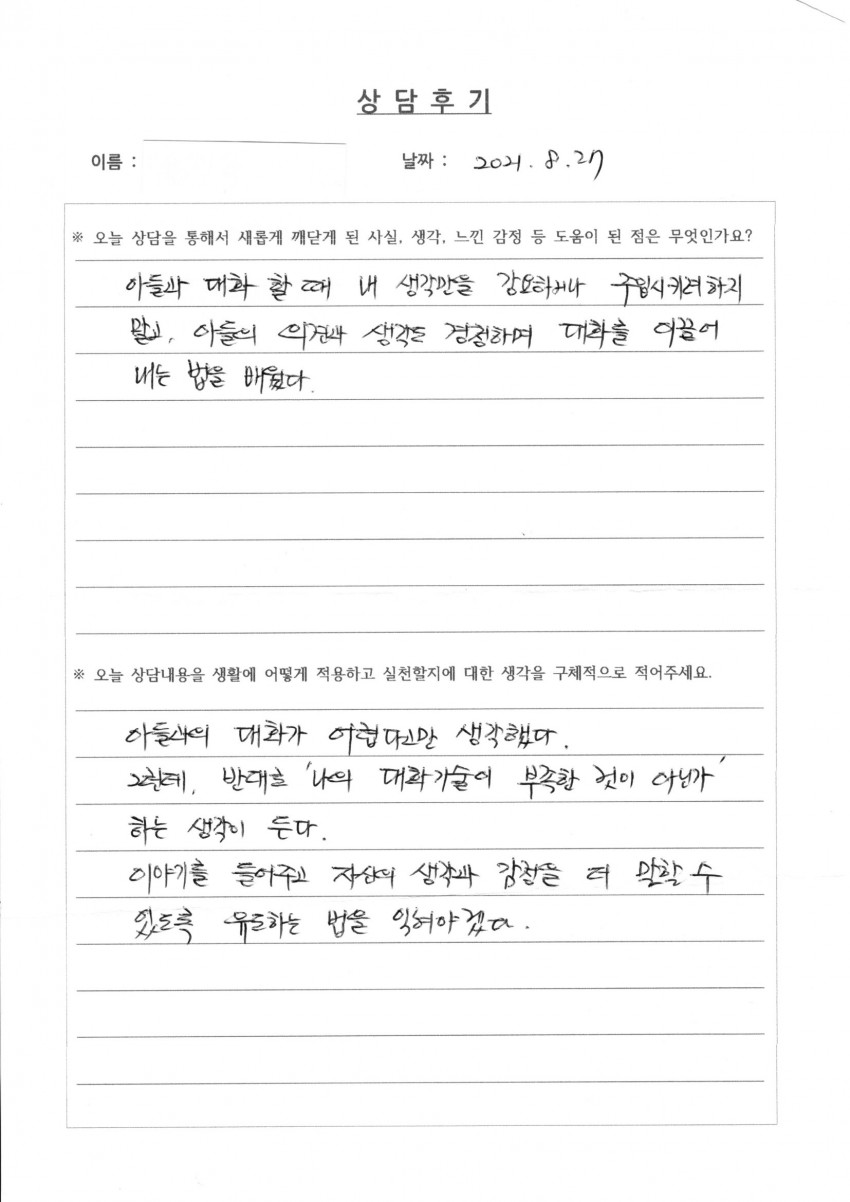 상 담 후 기
이름 : 날짜 : 2021. 8. 27
※ 오늘 상담을 통해서 새롭게 깨닫게 된 사실, 생각, 느낀 감정 등 도움이 된 점은 무엇인가요?
아들과 대화 할 때 내 생각만을 강요하거나 주입시키려하지
말고, 아들의 의견과 생각도 경청하며 대화를 이끌어
내는 법을 배웠다.
※ 오늘 상담내용을 생활에 어떻게 적용하고 실천할지에 대한 생각을 구체적으로 적어주세요.
아들과의 대화가 어렵다고만 생각했다.
그런데, 반대로 '나의 대화기술이 부족한 것이 아닌가'
하는 생각이 든다.
이야기를 들어주고 자신의 생각과 감정을 더 말할 수
있도록 유도하는 법을 익혀야겠다.